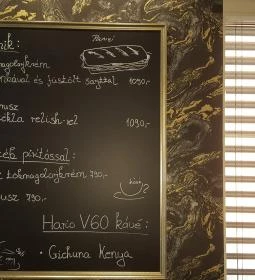 Panini
nik:
magolajkrém
mával és füstölt sajttal 1090,-
musz
ékla relish-sel 1090,-
ták pirítóssal:
z tökmagolajkrém 790,-
usz 790,-
Hario V60 kávé:
• Gichuna Kenya